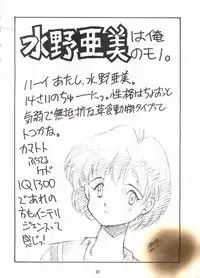 水野亜美は俺
のモノ。
ハーイ あたし、水野亜美。
14さいのちゅー…っ。性格はちょおっと
気弱で無抵抗な草食動物タイプって
トコかな。
カマトト
ぶってる
ケド
IQ1300
であれの
方もインテリ
ジェンスって
感じ!